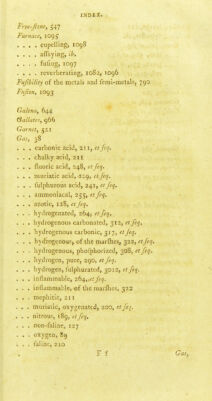 INDEX.
Free-stone, 547
Furnace, 1095
. . . . cupelling, 1098
. . . . assaying, ib.
. . . . fusing, 1097
. . . . reverberating, 1082, 1096
Fusibility of the metals and semi-metals, 790
Fusion, 1093
Galena, 644
Gallates, 966
Garnet, 521
Gas, 38
. . . carbonic acid, 211, et seq.
. . . chalky acid, 211
. . . fluoric acid, 248, et seq.
. . . muriatic acid, 229, et seq.
. . . sulphurous acid, 241, et seq.
. . . ammoniacal, 255, et seq.
. . . azotic, 128, et seq.
. . . hydrogenated, 264, et seq.
. . . hydrogenous carbonated, 312, et seq.
. . . hydrogenous carbonic, 317, et seq.
. . . hydrogenous, of the marshes, 322, et seq.
. . . hydrogenous, phosphorized, 308, et seq.
. . . hydrogen, pure, 290, et seq.
. . . hydrogen, sulphurated, 3012, et seq.
. . . inflammable, 264, et seq.
. . . inflammable, of the marshes, 322
. . . mephitic, 211
. . . muriatic, oxygenated, 200, et seq.
. . . nitrous, 189, et seq.
. . . non-saline, 127
. . . oxygen, 89
. . . saline, 210
F f Gas,